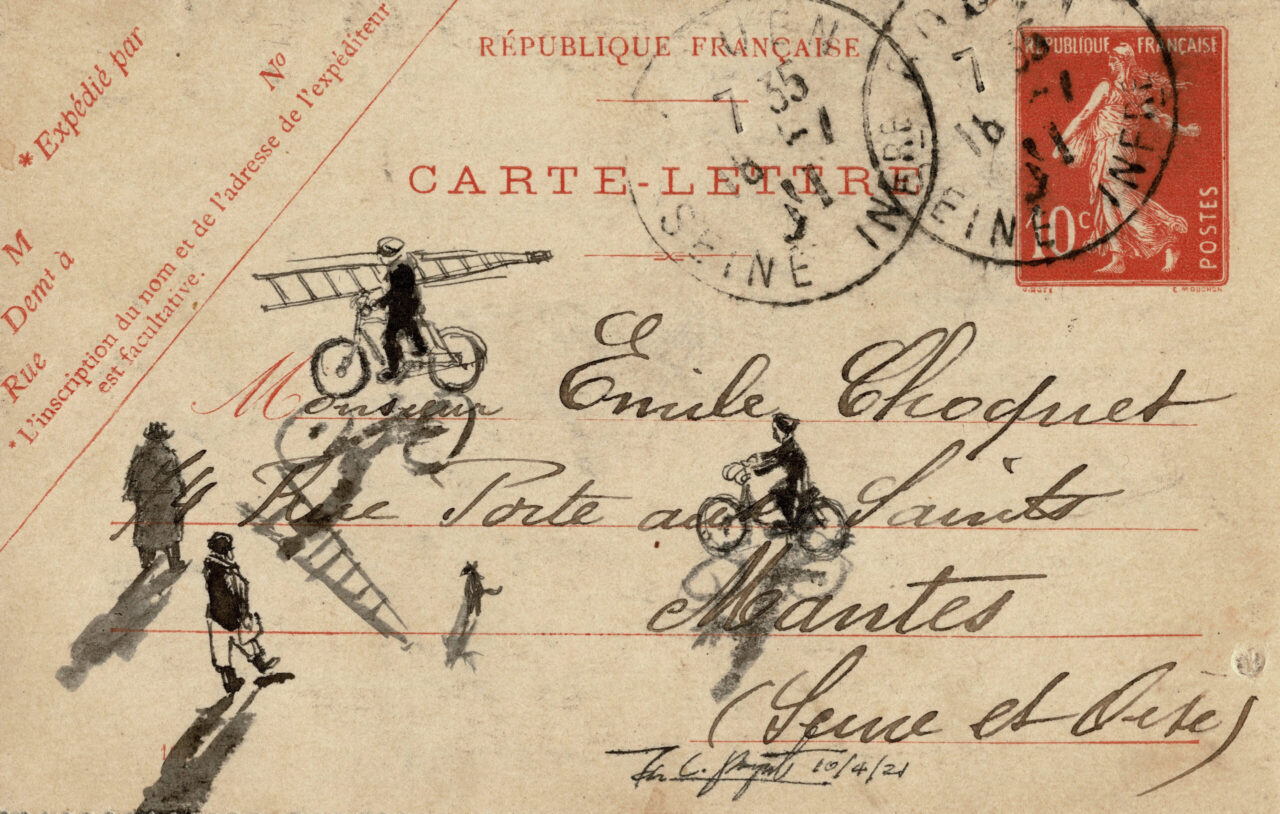 * Expédié par
M
N°
Demt à
Rue
* L'inscription du nom et de l'adresse de l'expéditeur
est facultative.
RÉPUBLIQUE FRANÇAISE
CARTE-LETTRE
7 35
16 -1
11
SEINE INFRE
7 35
16 -1
11
SEINE INFRE
RÉPUBLIQUE FRANÇAISE
10c
POSTES
E. MOUCHON
Monsieur Emile Choquet
Rue Porte aux Saints
Mantes
(Seine et Oise)
10/4/21